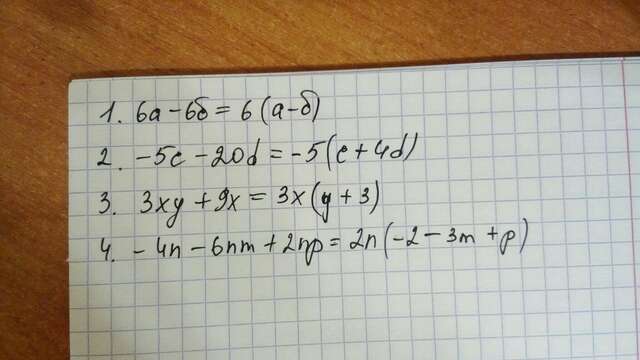 1. 6а - 6б = 6 (а - б)
2. -5c - 20d = -5 (c + 4d)
3. 3xy + 9x = 3x (y + 3)
4. - 4n - 6nm + 2np = 2n (-2 - 3m + p)